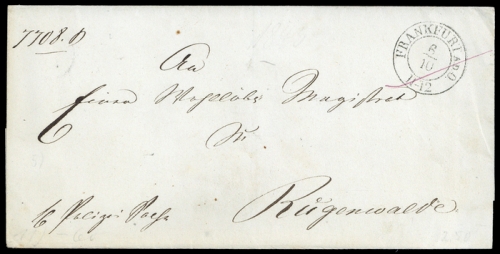 7708. D
FRANKFURT A/O
6
10
11-12
An
Einen Wohllöbl. Magistrat
zu
Rügenwalde
Polizei Sache